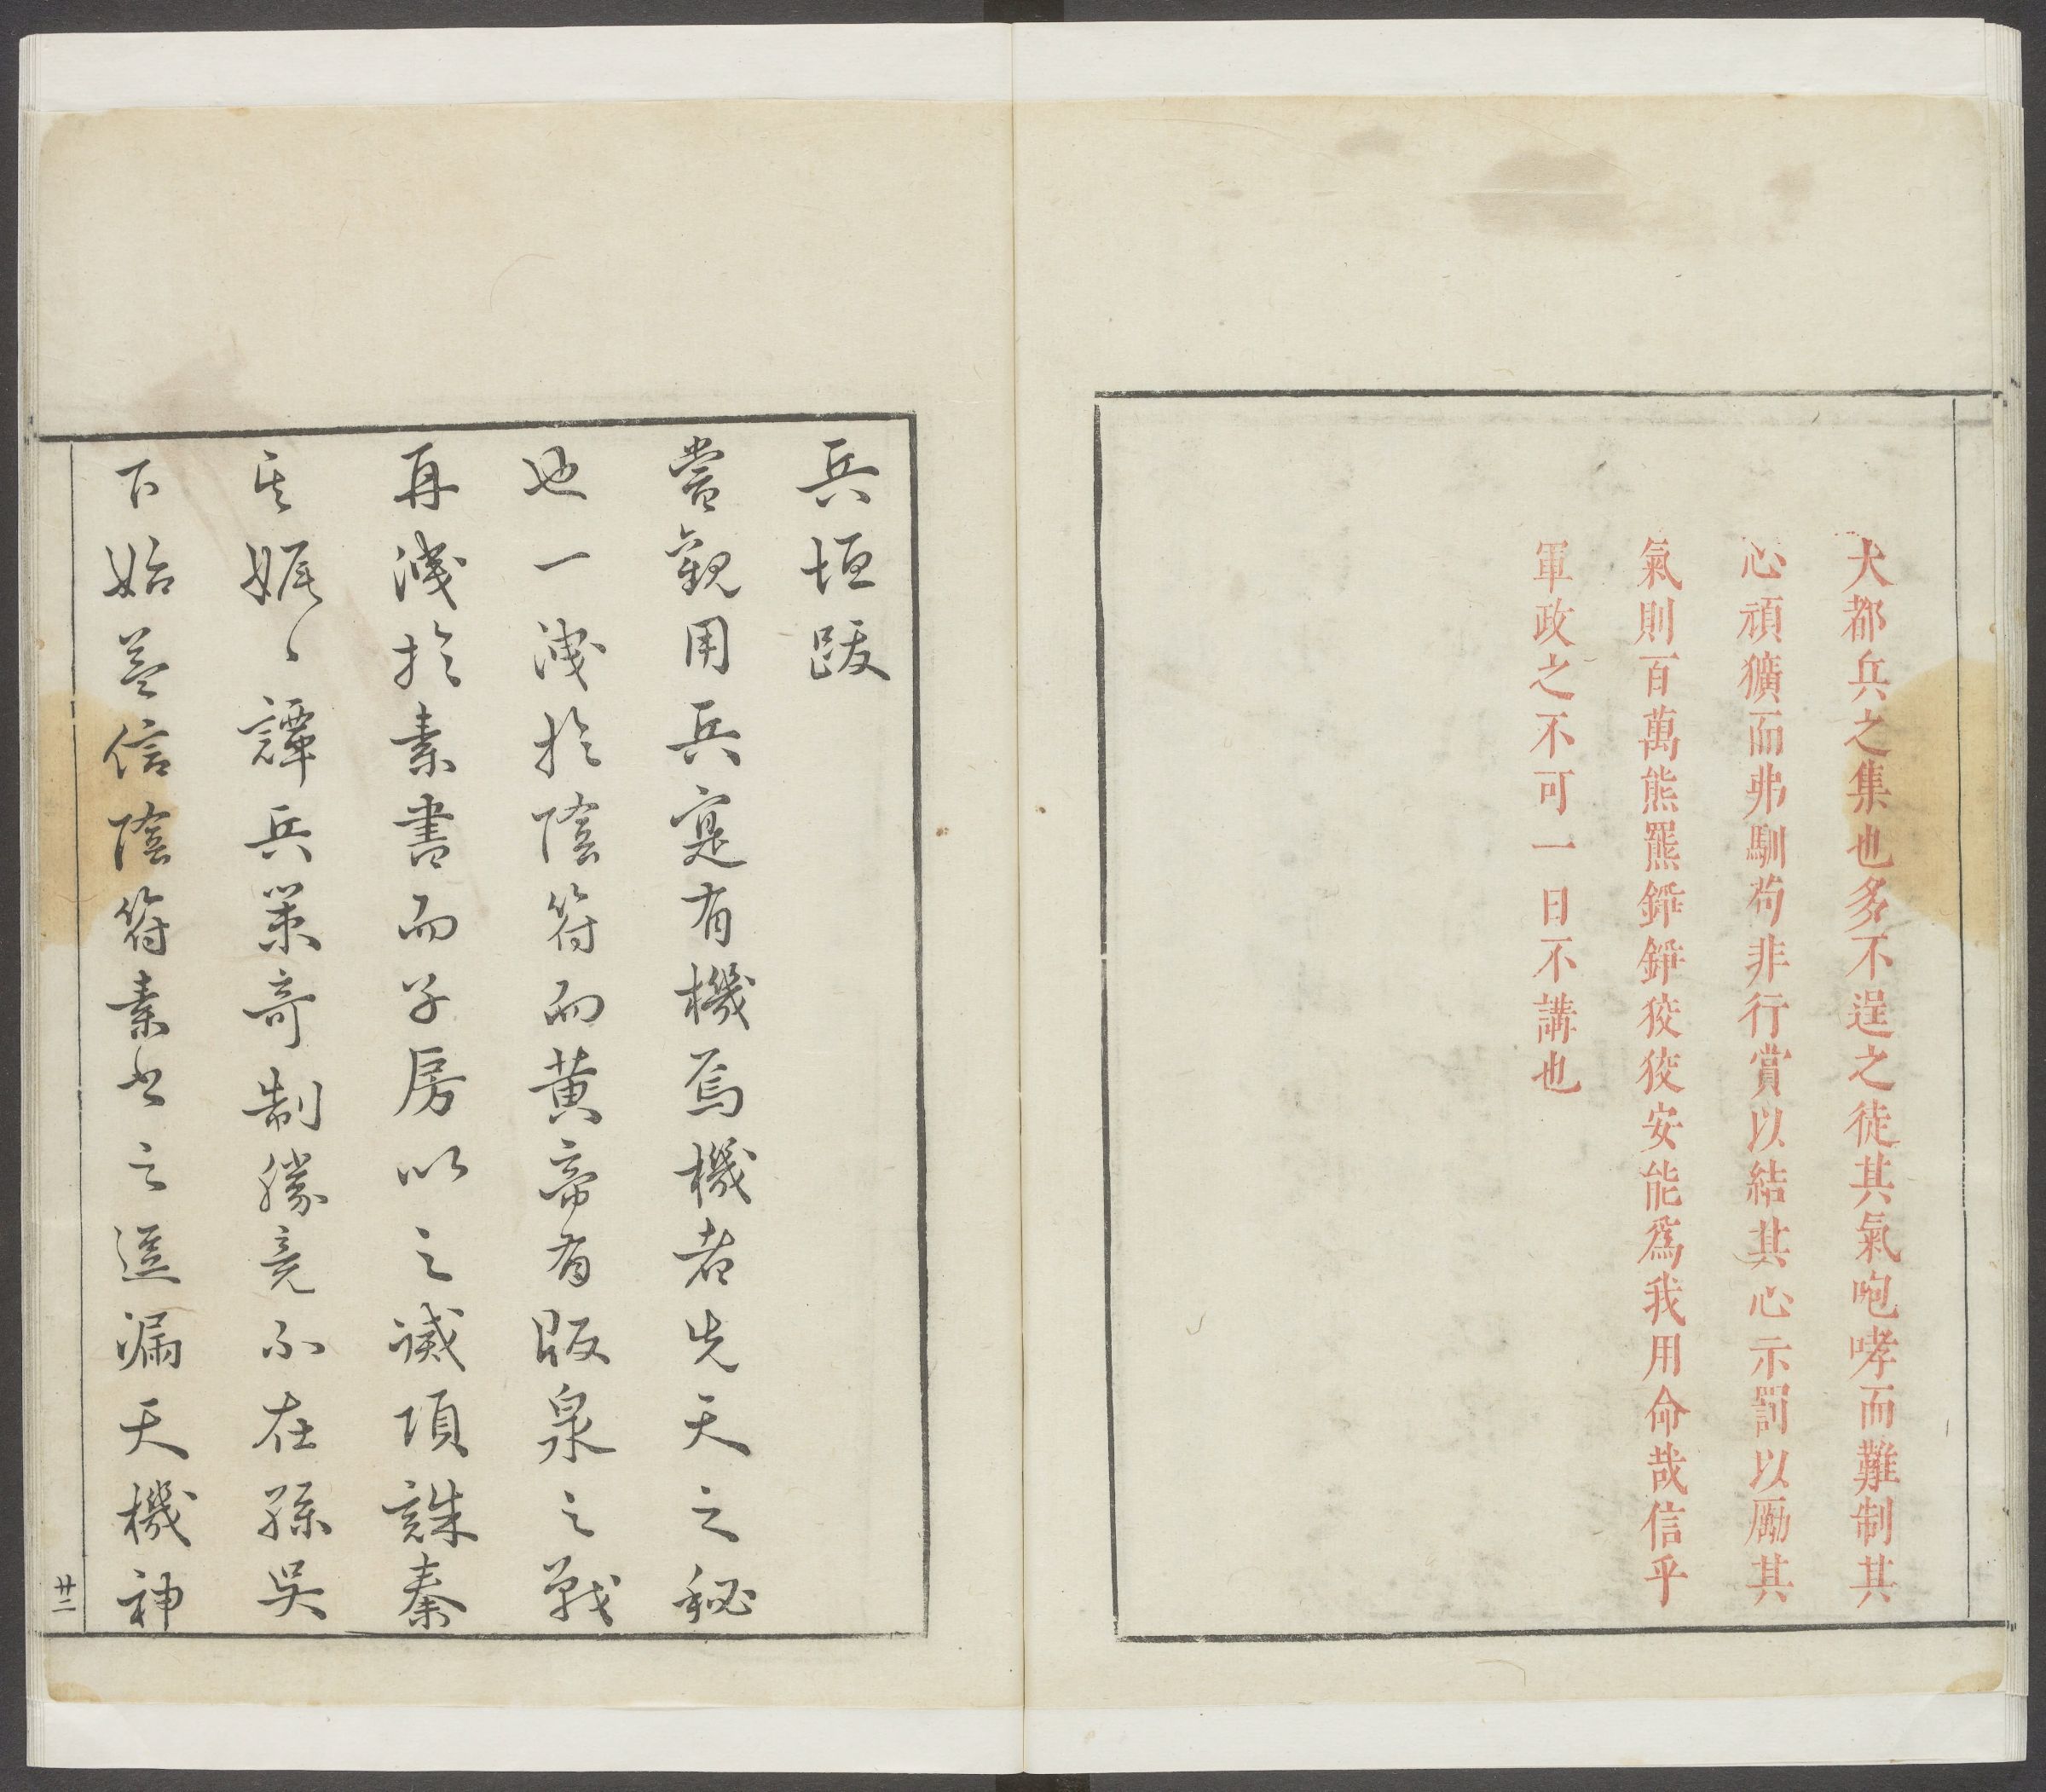 大都兵之集也多不逞之徒其氣咆哮而難制其
心頑獷而弗馴茍非行賞以結其心示罰以勵其
氣則百萬熊羆錚錚狡狡安能爲我用命哉信乎
軍政之不可一日不講也
兵垣跋
嘗觀用兵寔有機焉機者先天之秘
也一洩於陰符而黃帝有阪泉之戰
再洩於素書而子房以之滅項誅秦
其娓〻譚兵策奇制勝竟不在孫吳
下始蓋信陰符素書之逗漏天機神
廿二